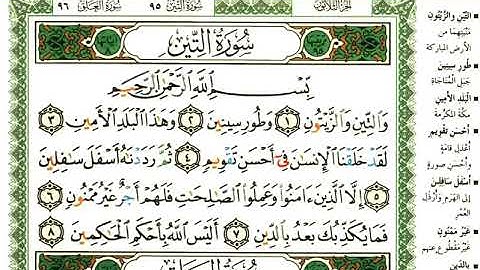 سُورَةُ العَلَق ٩٦
سُورَةُ التِّين ٩٥
الجزء الثلاثون
سُورَةُ التِّينِ
بِسْمِ اللَّهِ الرَّحْمَٰنِ الرَّحِيمِ
وَالتِّينِ وَالزَّيْتُونِ ١ وَطُورِ سِينِينَ ٢ وَهَٰذَا الْبَلَدِ الْأَمِينِ ٣
لَقَدْ خَلَقْنَا الْإِنسَانَ فِي أَحْسَنِ تَقْوِيمٍ ٤ ثُمَّ رَدَدْنَاهُ أَسْفَلَ سَافِلِينَ
٥ إِلَّا الَّذِينَ ءَامَنُوا وَعَمِلُوا الصَّالِحَاتِ فَلَهُمْ أَجْرٌ غَيْرُ مَمْنُونٍ ٦
فَمَا يُكَذِّبُكَ بَعْدُ بِالدِّينِ ٧ أَلَيْسَ اللَّهُ بِأَحْكَمِ الْحَاكِمِينَ ٨
سُورَةُ العَلَق
التِّين والزَّيتُونِ
مَنْبِتِهما من
الأرض المباركة
طُورِ سِينِينَ
جَبَلِ المُنَاجَاةِ
البَلَدِ الأَمِينِ
مكَّةَ المكرَّمةِ
أحْسَنِ تَقْوِيمٍ
أعْدَلِ قامَةٍ
وأحسنِ صورةٍ
أسْفَلَ سَافِلِينَ
إلى الهَرَمِ وأرْذَلِ
العُمُرِ
غَيْرُ مَمْنُونٍ
غَيْرُ مَقْطُوعٍ عنهم
بالدِّين